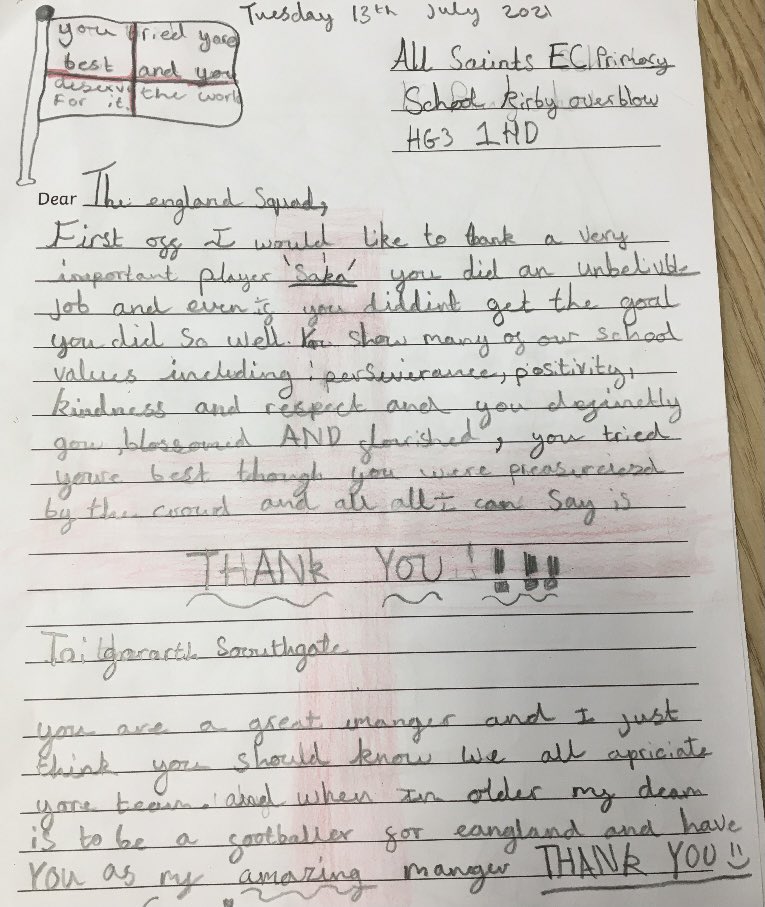 Tuesday 13th July 2021
you tried yore
best and you
deserve the world
For it
All Saints EC Primary
School Kirby overblow
HG3 1HD
Dear The england Squad,
First off I would like to thank a very
important player 'Saka' you did an unbelivble
job and even if you diddint get the goal
you did so well. You show many of our school
values including: perseverance, positivity,
kindness and respect and you definetly
blossomed AND flourished, you tried
youre best though you were
by the croud and all all I can Say is
THANK YOU !!!!
To: Southgate
you are a great manger and I just
think you should know we all apriciate
yore team. and when Im older my deam
is to be a footballer for eangland and have
You as my amazing manger THANK YOU